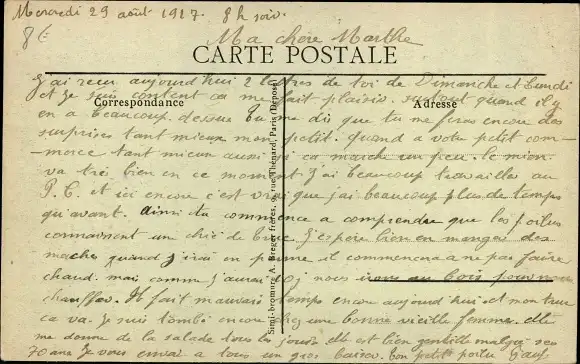 Mercredi 29 août 1917. 8h soir.
Ma chère Marthe
CARTE POSTALE
J'ai reçu aujourd'hui 2 lettres de toi de Dimanche et Lundi
et Je suis content ca me fait plaisir. surtout quand il y
Correspondance
Adresse
en a beaucoup. dessus tu me dis que tu me feras encore des
surprises tant mieux mon petit. quand a votre petit com-
merce tant mieux aussi si ca marche un peu. le mien
va très bien en ce moment J'ai beaucoup travailler au
P. C. et ici encore c'est vrai que j'ai beaucoup plus de temps
qu'avant. ainsi tu commence a comprendre que les poilus
connaissent un chic de truc. J'espère bien en manger des
maches quand j'irai en perme il commencera a ne pas faire
chaud. mai comme j'aurai toi nous irons au bois pour nous
chauffer. Il fait mauvais temps encore aujourd'hui et mon truc
ca va. Je suis tombé encore chez une bonne vieille femme. elle
me donne de la salade tous les jours elle est bien gentille malgré ses
70 ans Je vous envoie a tous un gros baiser. ton petit poilu
Simi-bromure A. Breger frères, 9, rue Thénard, Paris (Déposé)